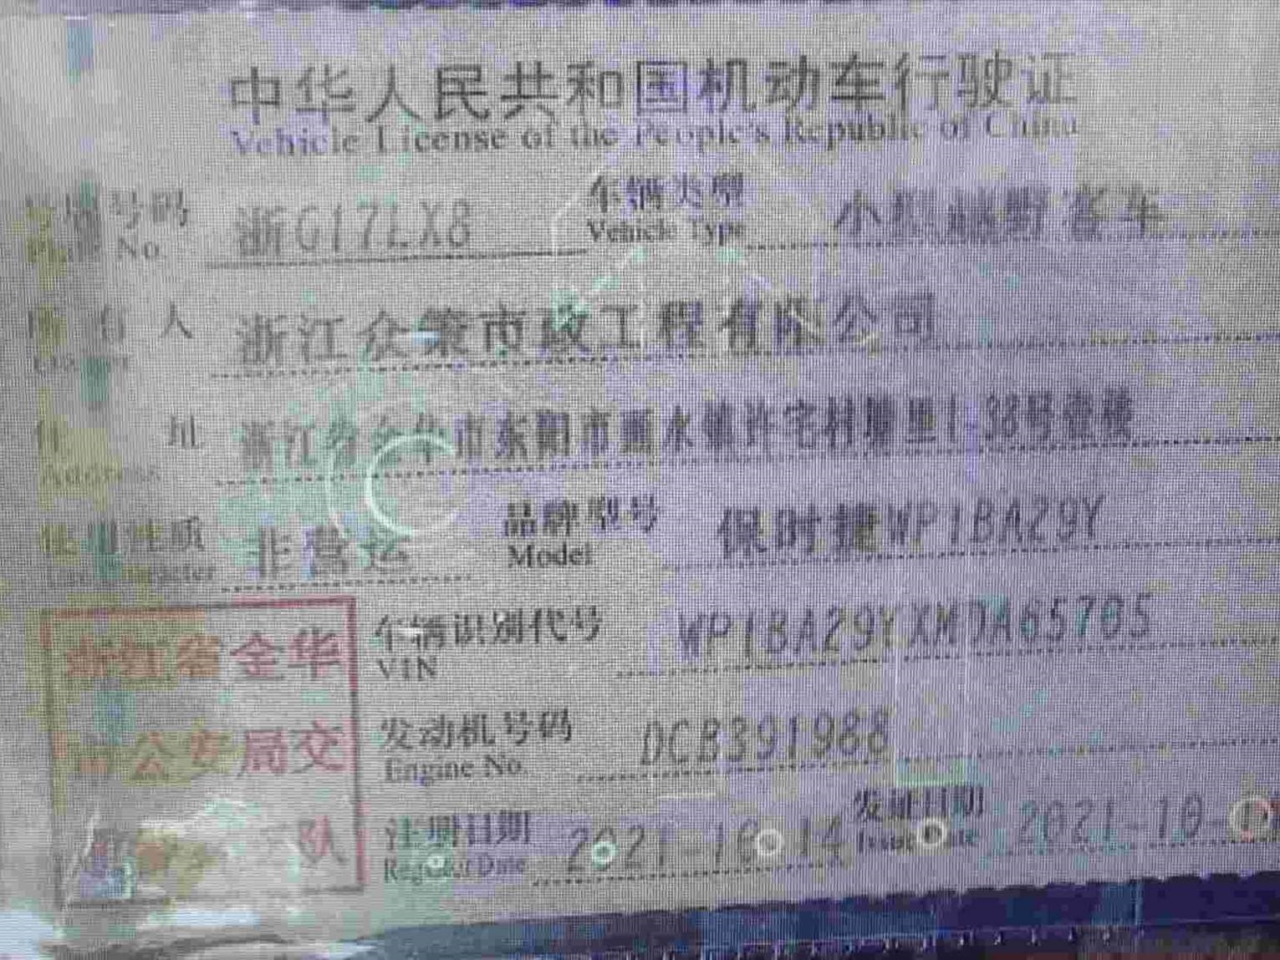 中华人民共和国机动车行驶证
Vehicle License of the People's Republic of China
号牌号码 浙G17LX8 车辆类型 小型越野客车
Plate No. Vehicle Type
所有人 浙江众策市政工程有限公司
Owner
住址 浙江省金华市东阳市画水镇许宅村塘里1-38号壹楼
Address
使用性质 非营运 品牌型号 保时捷WP1BA29Y
Use Character Model
车辆识别代号 WP1BA29YXMDA65705
VIN
发动机号码 DCB391988
Engine No.
注册日期 2021-10-14 发证日期 2021-10-
Register Date Issue Date
浙江省金华
市公安局交
队